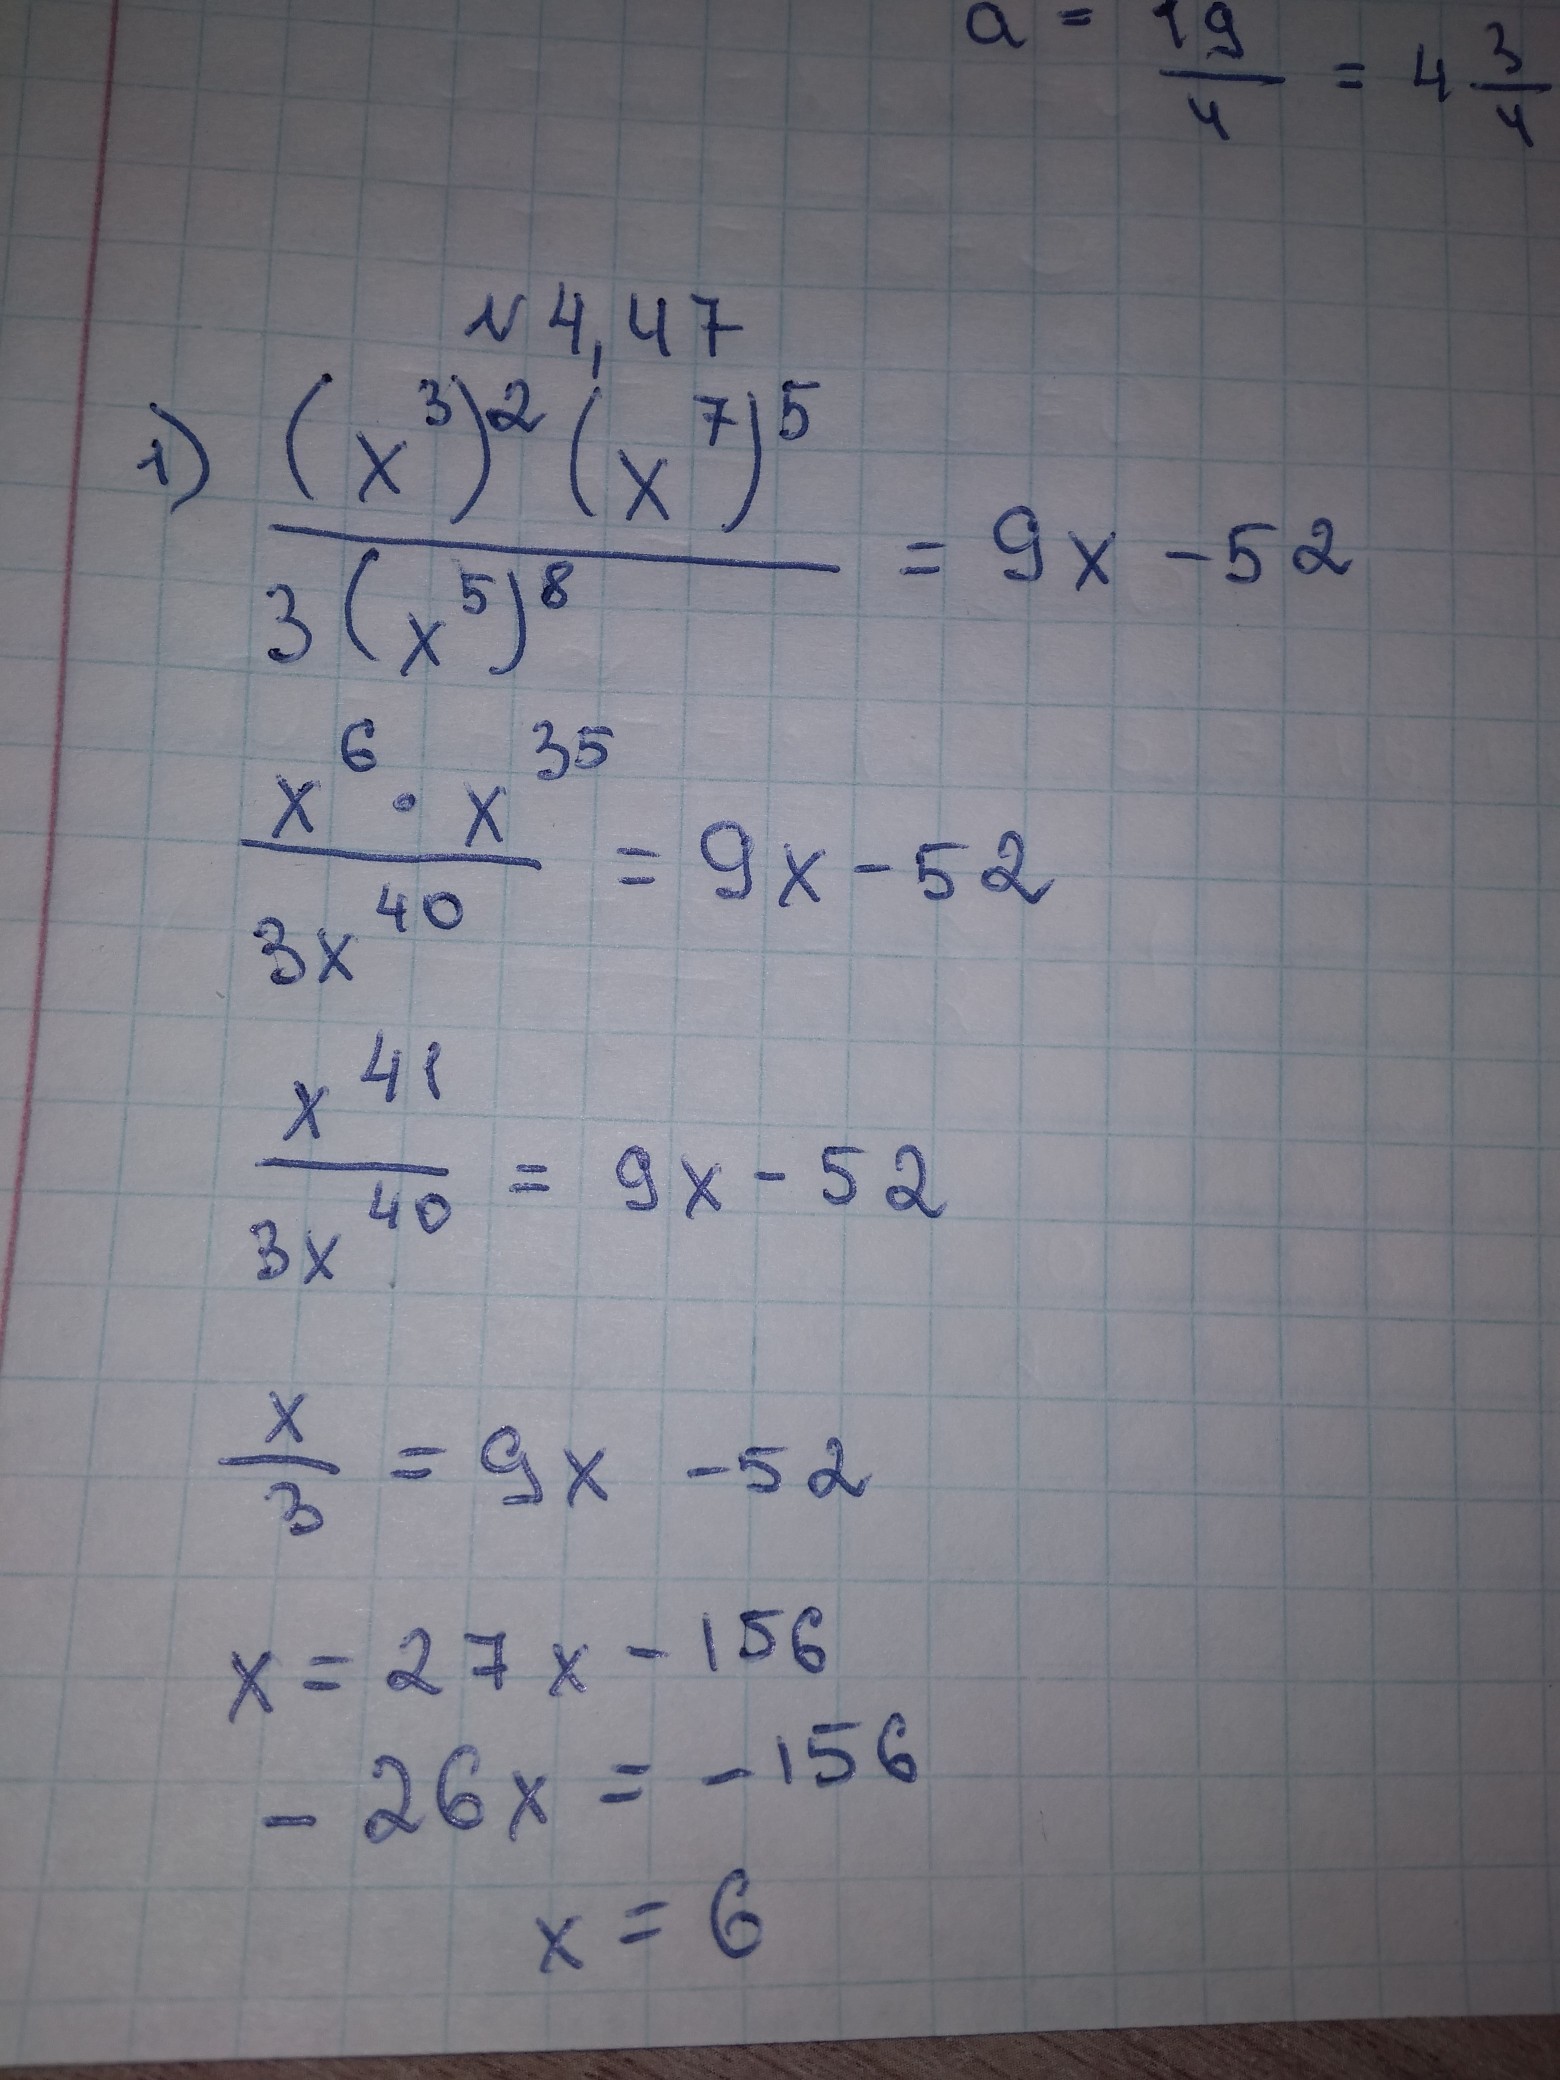 a = 19/4 = 4 3/4
N 4,47
1) (x^3)^2 (x^7)^5 / 3(x^5)^8 = 9x - 52
x^6 · x^35 / 3x^40 = 9x - 52
x^41 / 3x^40 = 9x - 52
x/3 = 9x - 52
x = 27x - 156
- 26x = - 156
x = 6